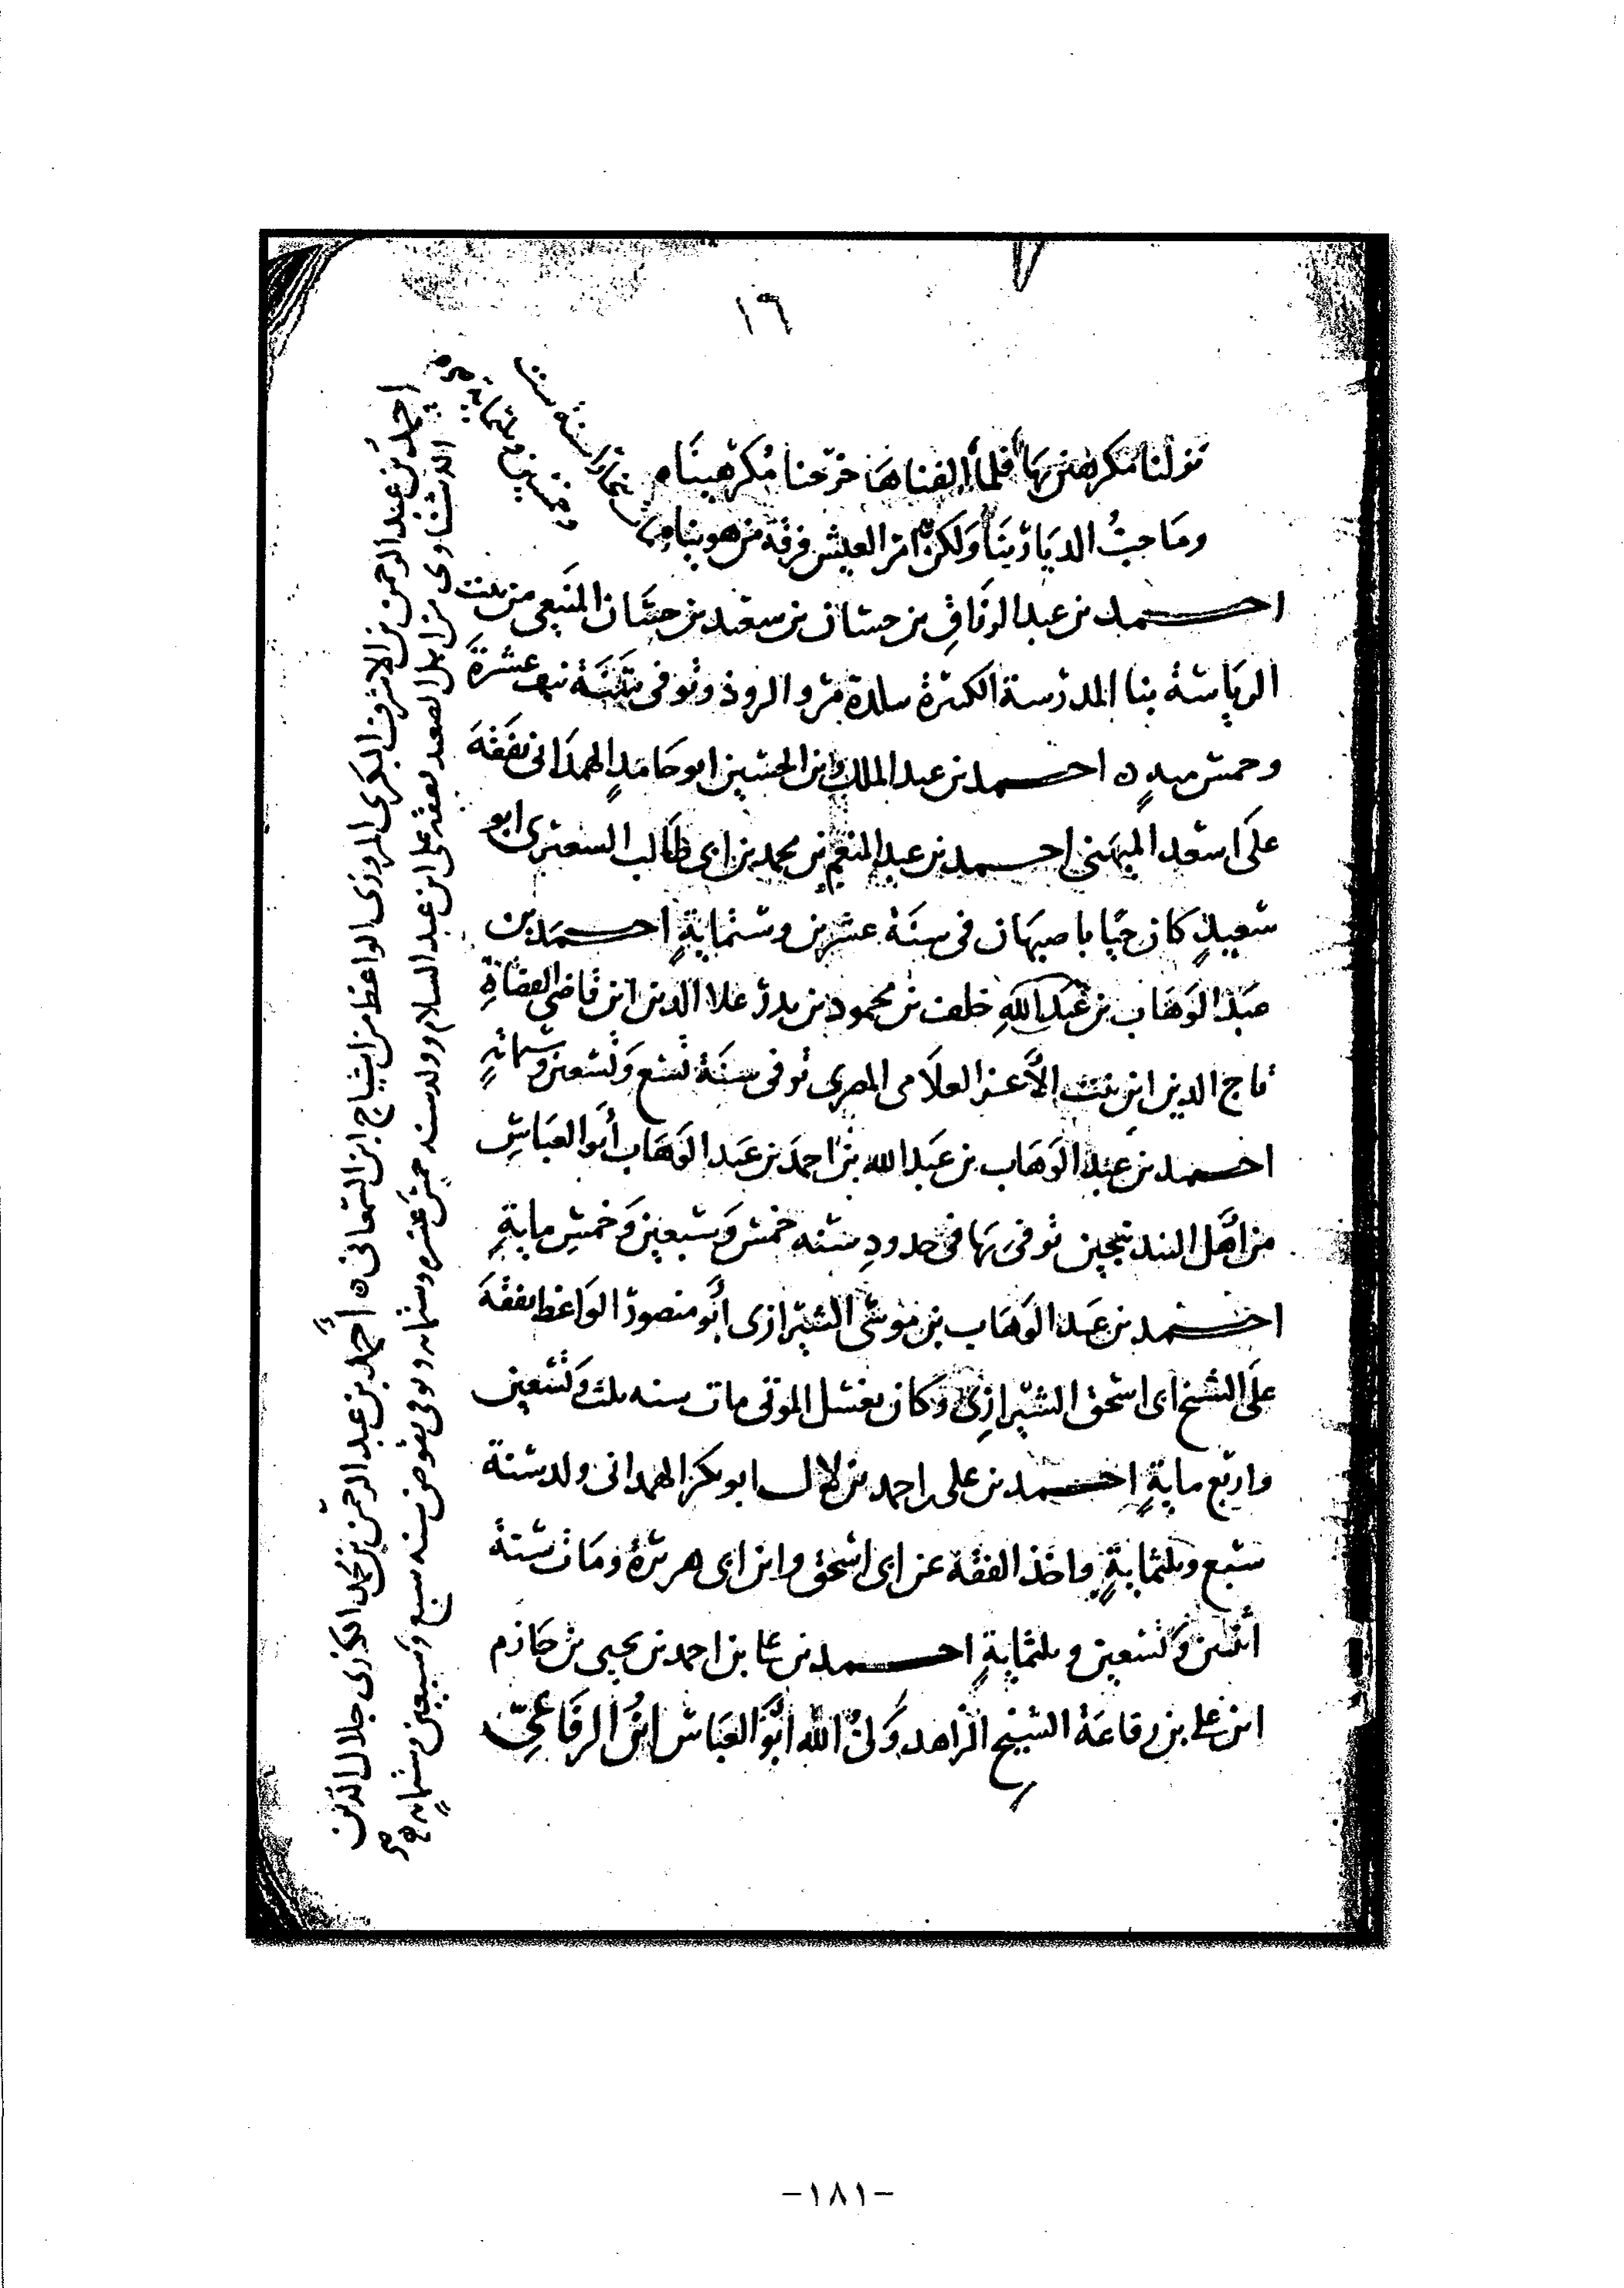 ١٦
نزلنا مكرهين بها فلما ألفناها خرجنا مكرهينا ه
وما حب الديار بنا ولكن امر العيش فرقة من هوينا
احمد بن عبد الرزاق بن حسان بن سعيد بن حسان المنيعي من بيت
الرياسة بنا المدرسة الكبيرة ببلدة مرو الروذ وتوفى سنة نيف عشرة
وخمس ميه ه احمد بن عبد الملك بن الحسين ابو حامد الهمذاني تفقه
على اسعد الميهني احمد بن عبد المنعم بن محمد بن ابي طالب السعتري ابو
سعيد كان حيا باصبهان في سنة عشرين وستماية احمد بن
عبد الوهاب بن عبد الله خلف بن محمود بن بدر علا الدين ابن قاضي القضاة
تاج الدين ابن بنت الأعز العلامي المصري توفى سنة تسع وتسعين وستمائة
احمد بن عبد الوهاب بن عبد الله بن احمد بن عبد الوهاب أبو العباس
من أهل البندنيجين توفى بها في حدود سنه خمس وسبعين وخمس ماية
احمد بن عبد الوهاب بن موسى الشيرازى أبو منصور الواعظ تفقه
على الشيخ ابى اسحق الشيرازى وكان يغسل الموتى مات سنه ثلث وتسعين
واربع ماية احمد بن على بن احمد بن لال ابو بكر الهمدانى ولد سنة
سبع وثلثماية واخذ الفقه عن ابى اسحق وابن ابى هريرة ومات سنة
أثنين وتسعين وثلثماية احمد بن على بن احمد بن يحيى بن حازم
ابن على بن رفاعة الشيخ الزاهد ولى الله أبو العباس ابن الرفاعى
احمد بن عبد الرحمن بن الاشرف البكري المروزى الواعظ من اشياخ ابن السمعانى ه أحمد بن عبد الرحمن بن محمد الكزى جلال الدين
الدشناوى من اهل الصعيد تفقه على ابن عبد السلام وولد سنه خمس عشره وستمايه وتوفى بقوص سنه سبع وسبعين وستمايه
-١٨١-